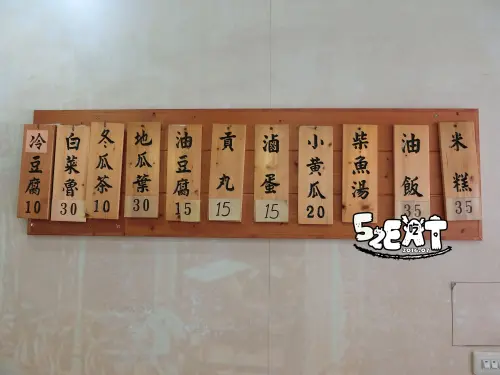 米糕 35
油飯 35
柴魚湯
小黃瓜 20
滷蛋 15
貢丸 15
油豆腐 15
地瓜葉 30
冬瓜茶 10
白菜魯 30
冷豆腐 10
52EAT
2016.07